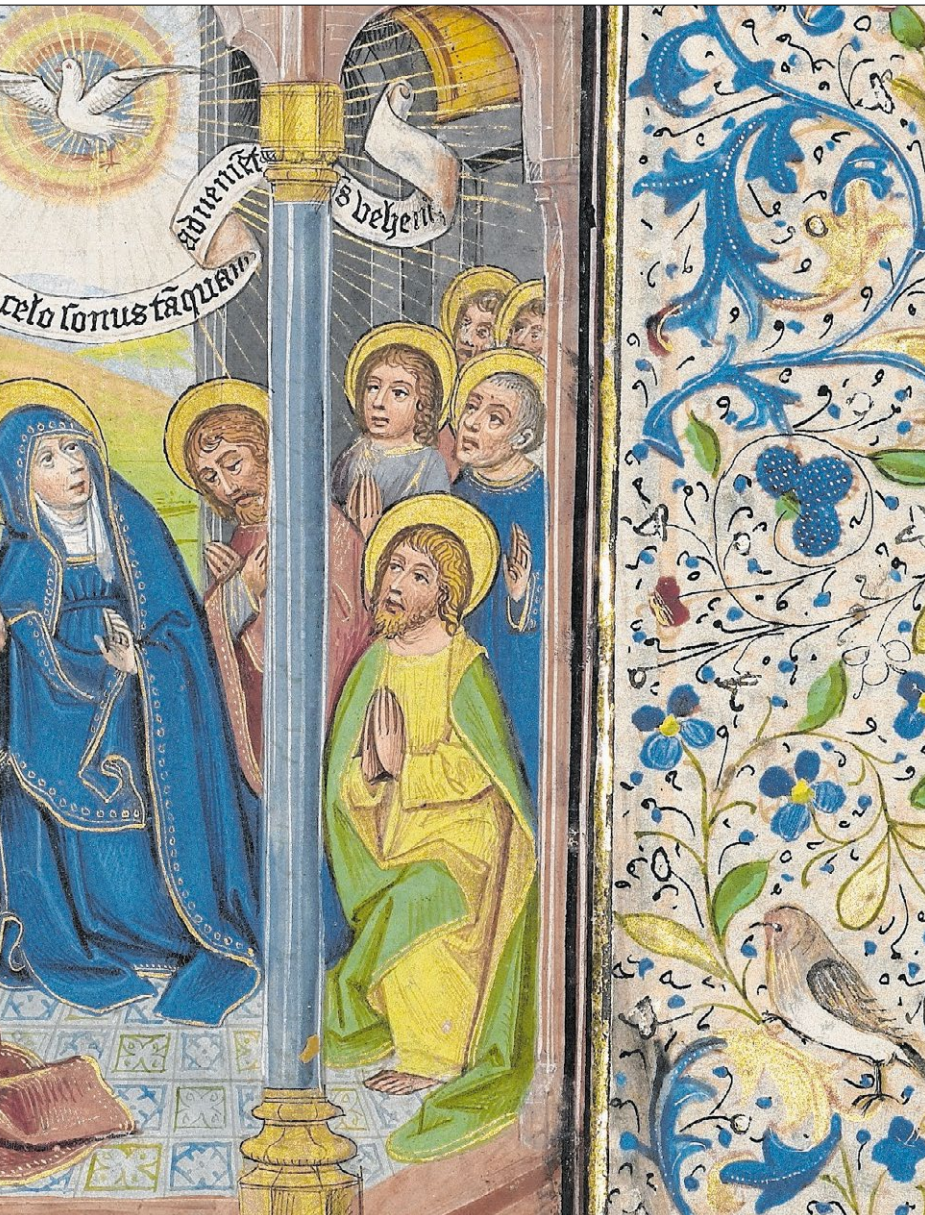 celo sonus tāquam
aduenietis
s vehem